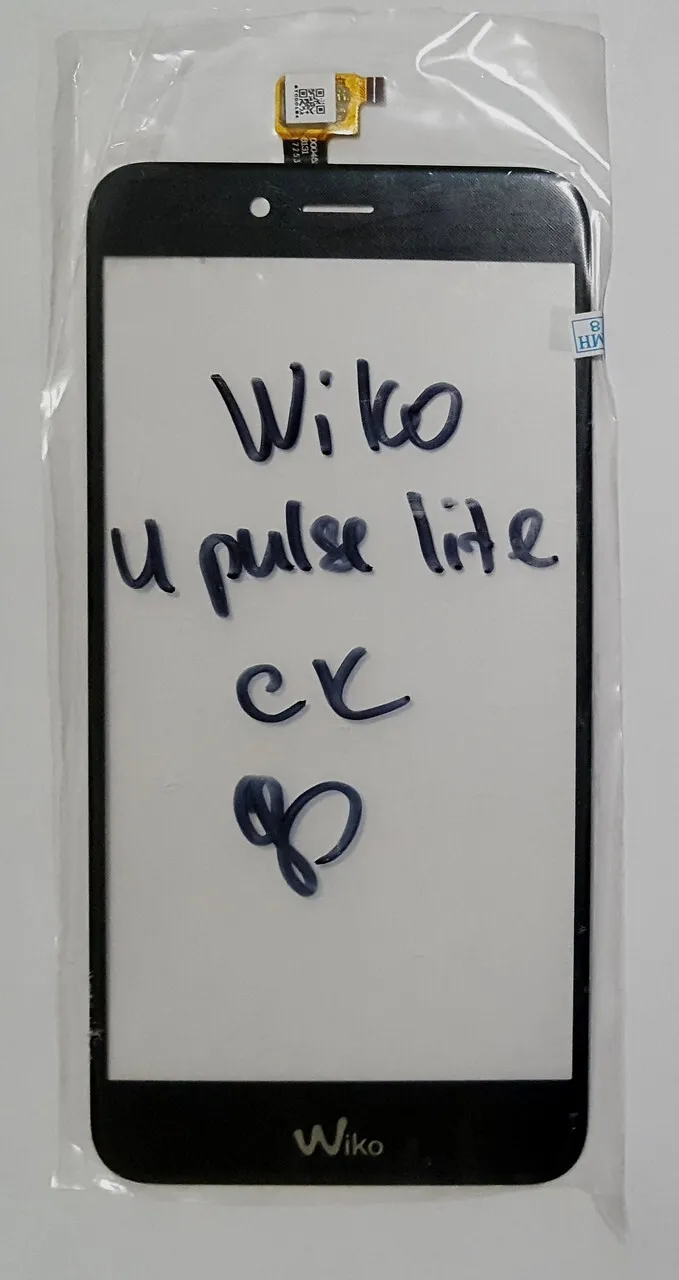 Wiko
U pulse lite
CK
MH
8
Wiko